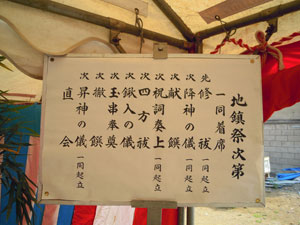 地鎮祭次第
一同着席
先 修祓 一同起立
次 降神の儀 一同起立
次 献饌
次 祝詞奏上 一同起立
次 四方祓
次 鍬入の儀
次 玉串奉奠
次 撤饌
次 昇神の儀 一同起立
直会